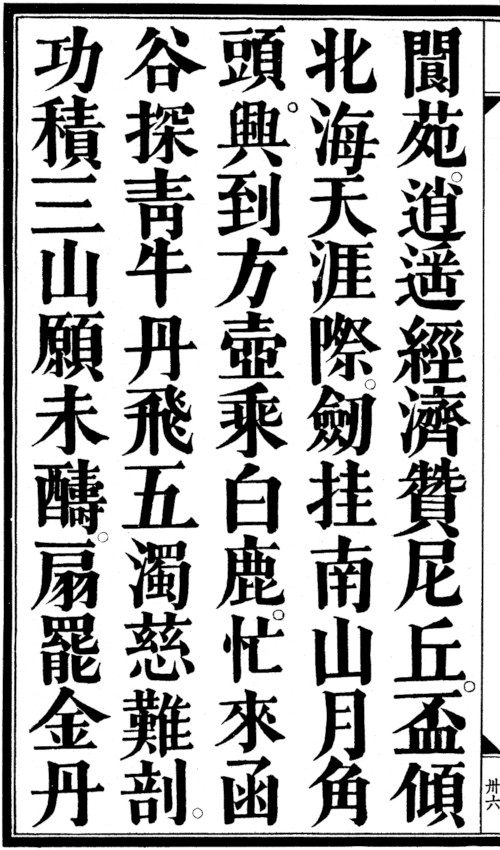 閬苑。逍遥經濟贊尼丘。盃傾
北海天涯際。劒挂南山月角
頭。興到方壺乘白鹿。忙來函
谷探靑牛丹飛五濁慈難剖。
功積三山願未醻。扇罷金丹
卅六